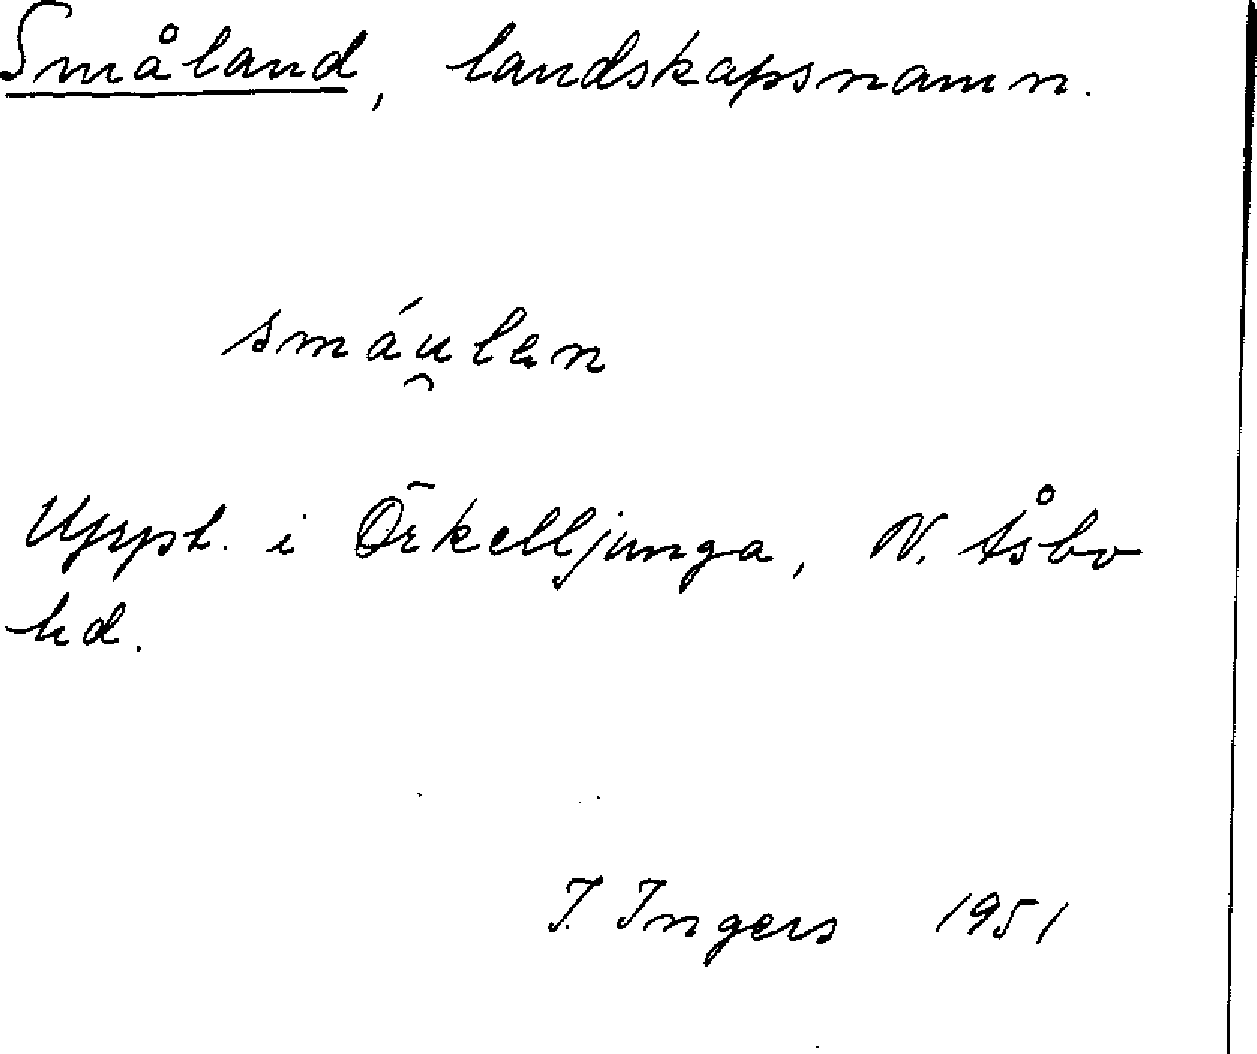 Småland, landskapsnamn.
smáu̯len
Uppt. i Örkelljunga, N. Åsbo
hd.
I. Ingers 1951